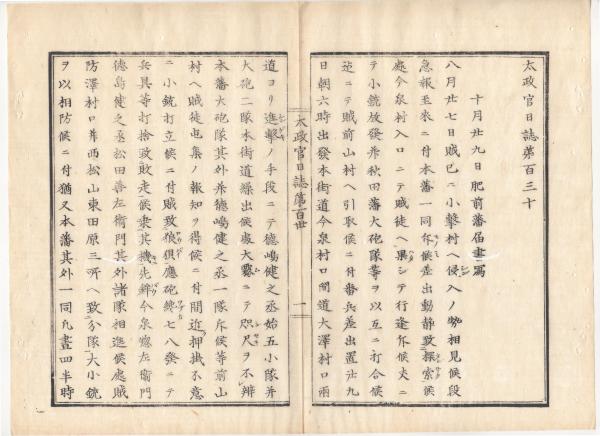 太政官日誌第百三十
十月廿九日肥前藩届書寫
八月廿七日賊已ニ小擊村ヘ侵入ノ勢相見候段
急報至来ニ付本藩一同斥候差出動静致探索候
處今泉村入口ニテ賊徒ヘ果シテ行逢斥候火ニ
テ小銃放發并秋田藩大砲隊等ヲ以互ニ打合候
迄ニテ賊前山村ヘ引取候ニ付番兵差出置廿九
日朝六時出發本街道今泉村口間道大澤村口兩
太政官日誌第百卅
一
道ヨリ進擊ノ手段ニテ德嶋健之丞始五小隊并
大砲二隊本街道繰出候處大霧ニテ咫尺ヲ不辨
本藩大砲隊其外并德嶋健之丞一隊斥候等前山
村ヘ賊徒屯集ノ報知ヲ得候ニ付間近押詰不意
ニ小銃打立候ニ付賊致狼狽應砲纔七八發ニテ
兵具等打捨致敗走候乗其機先鋒今泉靏左衛門
德島健之丞松田善左衛門其外諸隊相進候處賊
防澤村口并西松山東田原三所ヘ致分隊大小銃
ヲ以相防候ニ付猶又本藩其外一同凡晝四半時